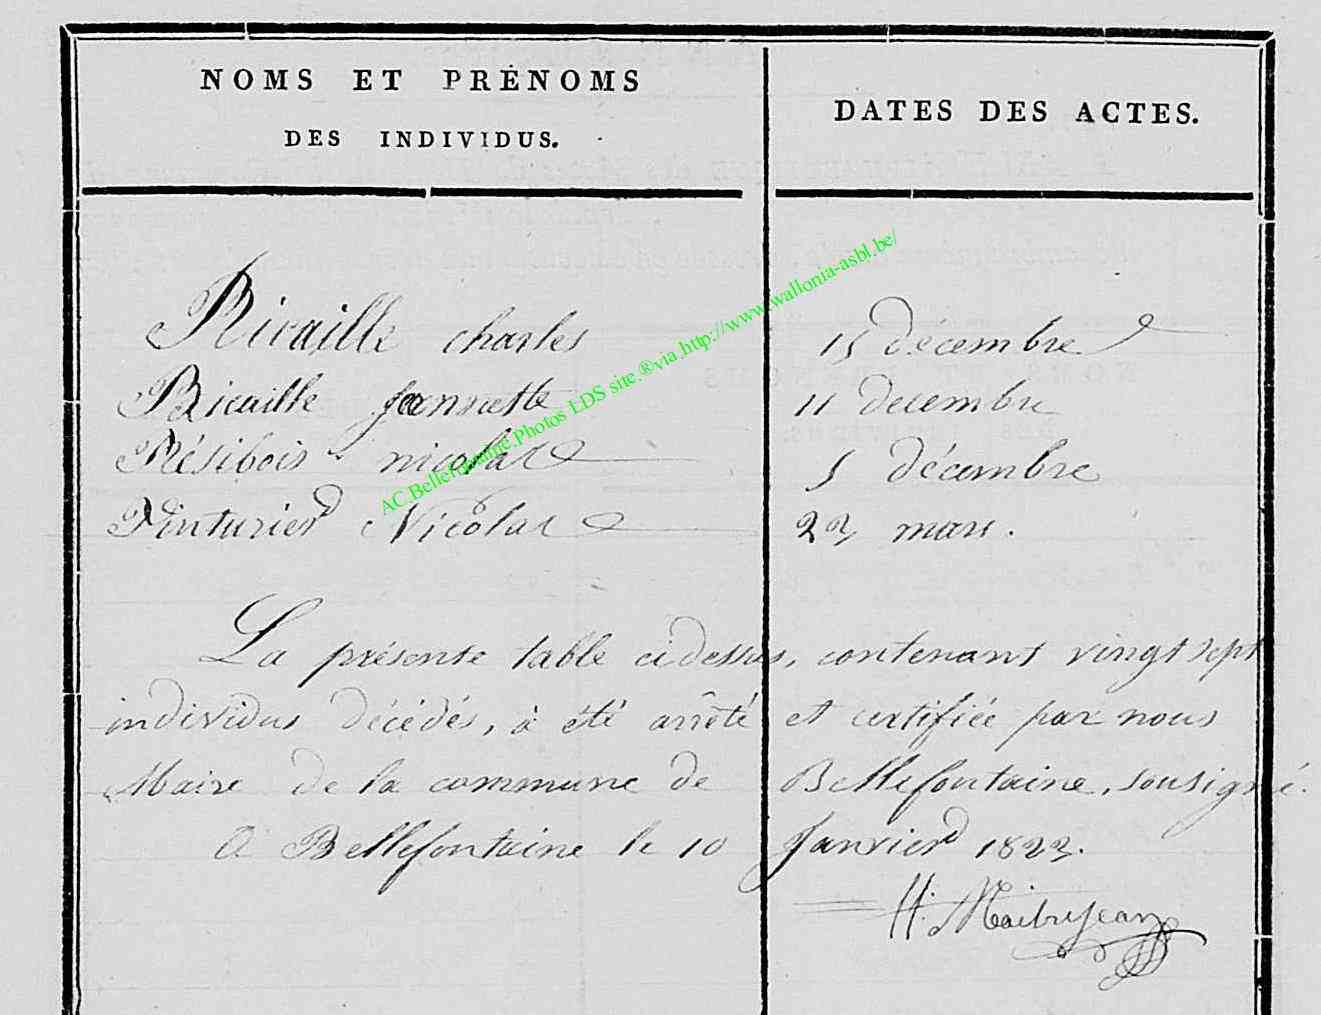 NOMS ET PRÉNOMS
DES INDIVIDUS.
DATES DES ACTES.
Ricaille charles 15 décembre
Ricaille jeannette 11 decembre
Résibois nicolas 5 décembre
Vinturier Nicolas 23 mars.
La présente table cidessus, contenant vingt sept
individus décédés, à été arrêté et certifiée par nous
Maire de la commune de Bellefontaine, sousigné.
A Bellefontaine le 10 Janvier 1823.
H. Maitrejean
AC.Bellefontaine.Photos LDS site.®via.http://www.wallonia-asbl.be/